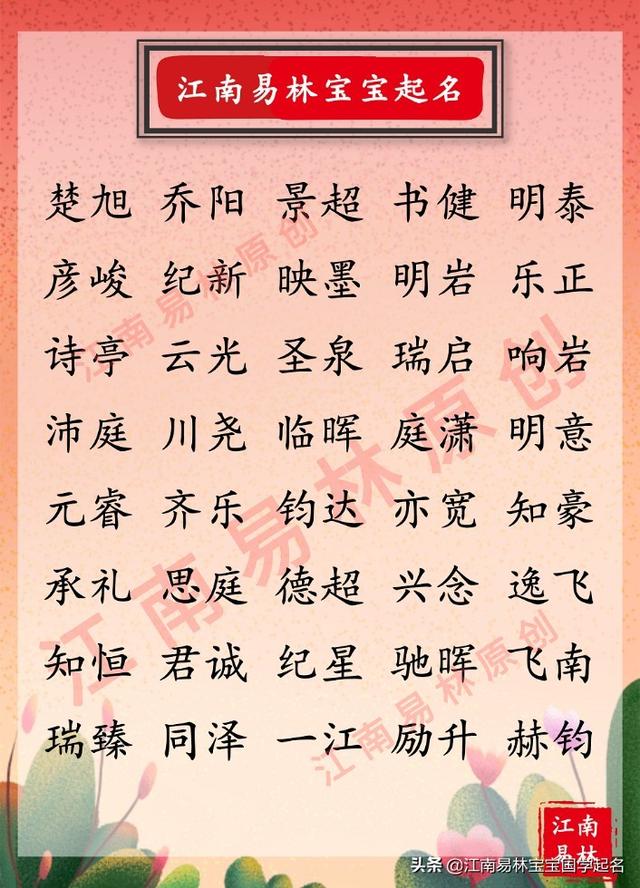 江南易林宝宝起名
楚旭 乔阳 景超 书健 明泰
彦峻 纪新 映墨 明岩 乐正
诗亭 云光 圣泉 瑞启 响岩
沛庭 川尧 临晖 庭潇 明意
元睿 齐乐 钧达 亦宽 知豪
承礼 思庭 德超 兴念 逸飞
知恒 君诚 纪星 驰晖 飞南
瑞臻 同泽 一江 励升 赫钧
江南易林原创
江南易林原创
江南易林原创
江南
易林
头条 @江南易林宝宝国学起名